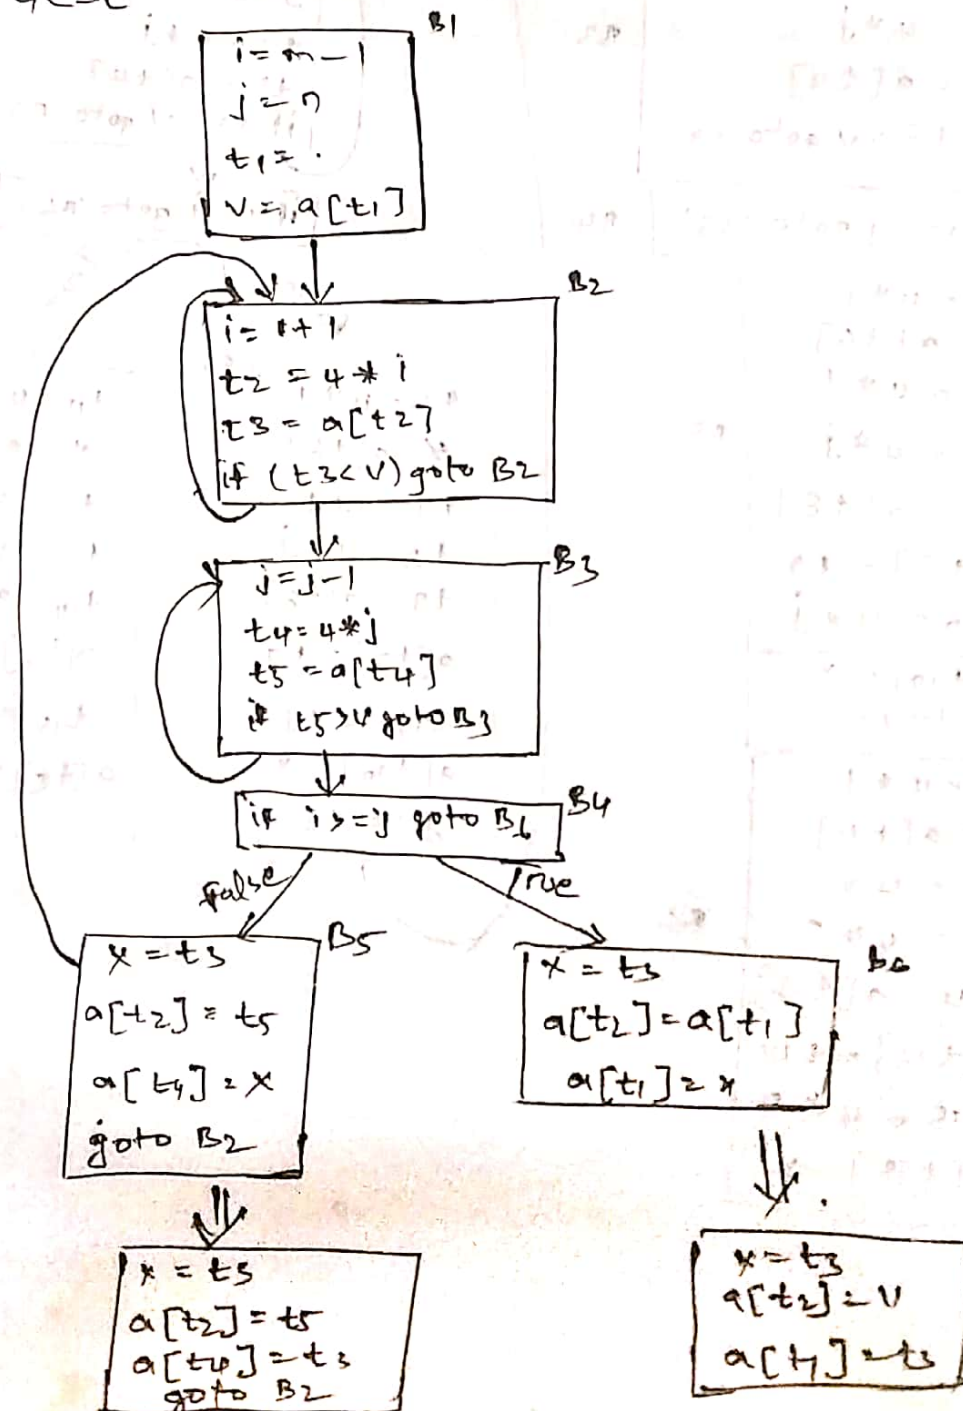 B1
i = m - 1
j = n
t1 = .
v = a[t1]
B2
i = i + 1
t2 = 4 * i
t3 = a[t2]
if (t3 < v) goto B2
B3
j = j - 1
t4 = 4 * j
t5 = a[t4]
if t5 > v goto B3
B4
if i >= j goto B6
false
True
B5
x = t3
a[t2] = t5
a[t4] = x
goto B2
B6
x = t3
a[t2] = a[t1]
a[t1] = x
x = t3
a[t2] = t5
a[t4] = t3
goto B2
x = t3
a[t2] = v
a[t1] = t3